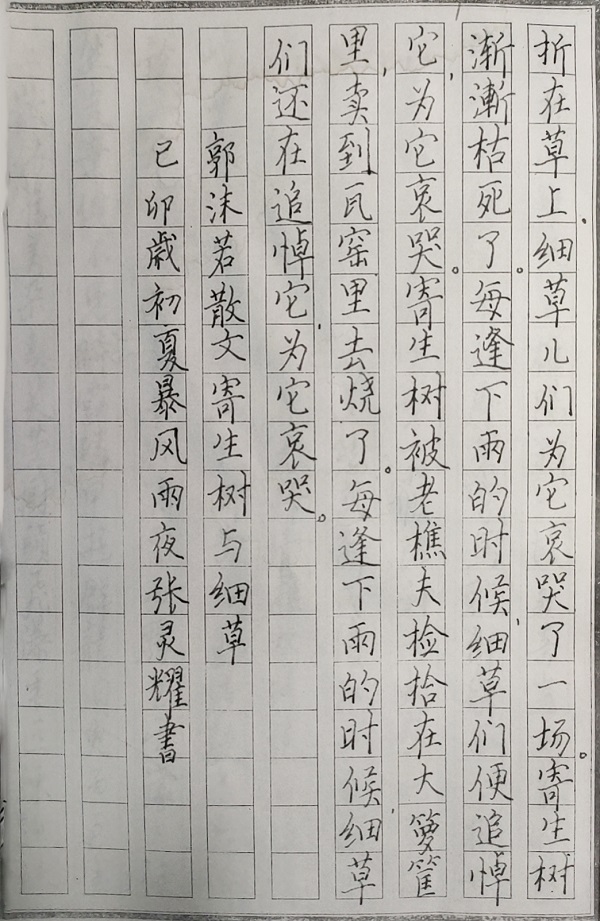 折在草上、细草儿们为它哀哭了一场。寄生树
渐渐枯死了。每逢下雨的时候，细草们便追悼
它，为它哀哭。寄生树被老樵夫检拾在大箩筐
里，卖到瓦窑里去烧了。每逢下雨的时候，细草
们还在追悼它，为它哀哭。
郭沫若散文寄生树与细草
己卯歲初夏暴风雨夜张灵耀書